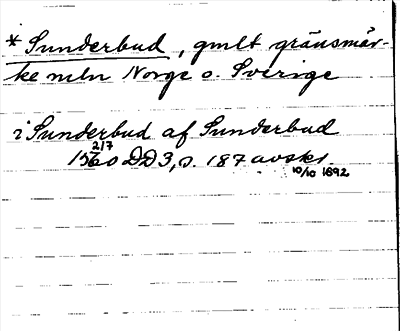 *Sunderbud, gmlt gränsmär-
ke mln Norge o. Sverige
i Sunderbud af Sunderbud
2/7
1560 DD3, s. 187 avskr.
10/10 1692